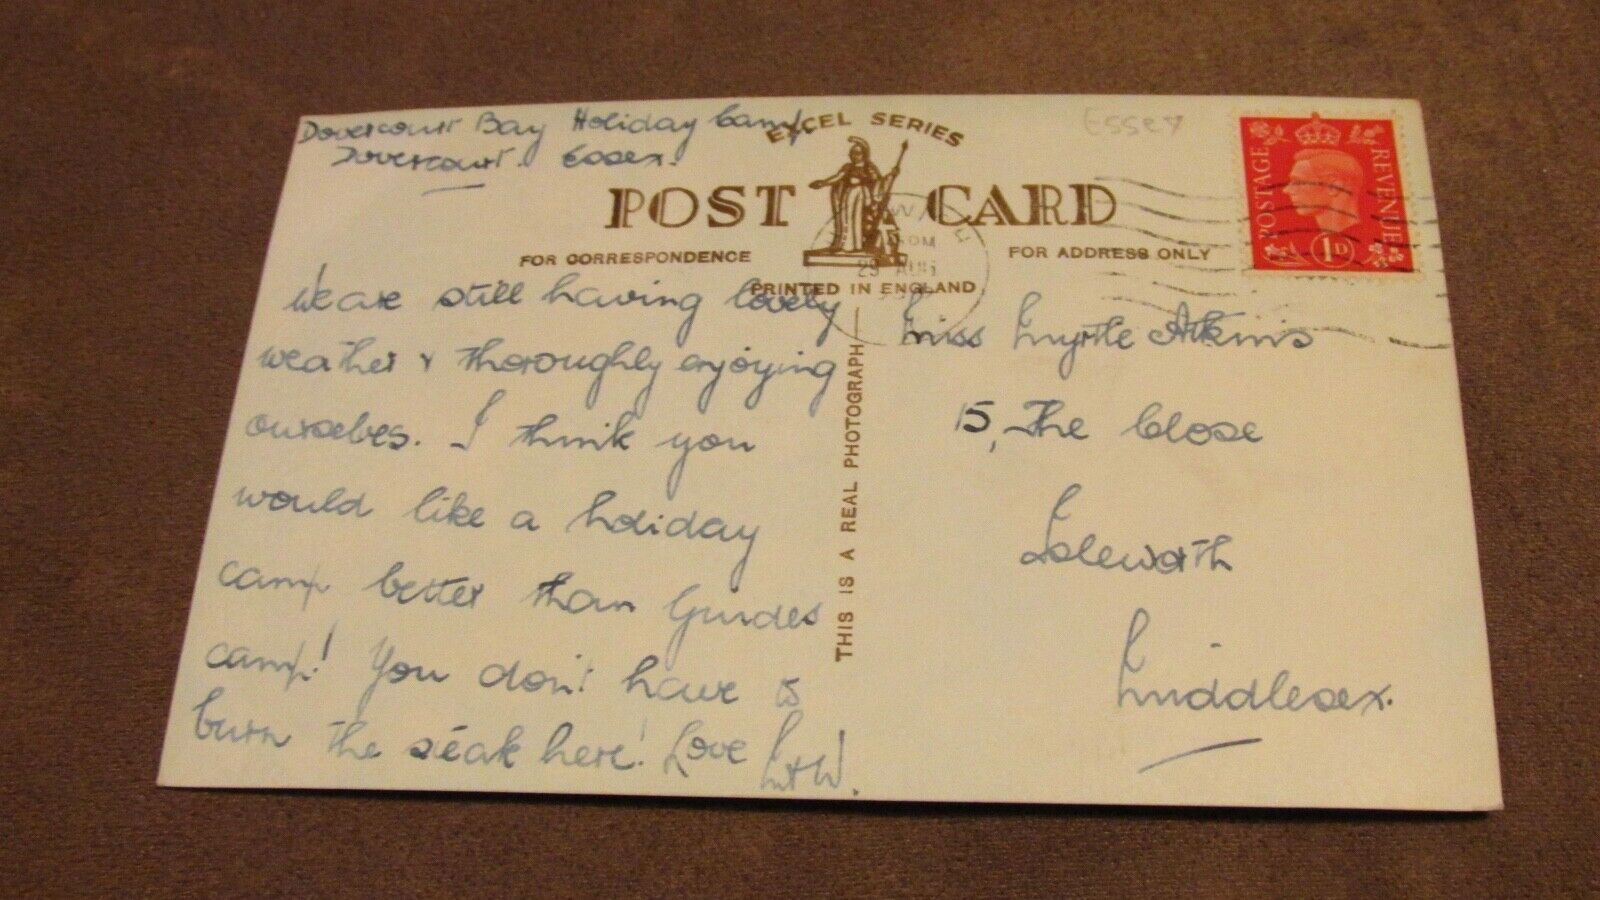 Dovercourt Bay Holiday Camp
Dovercourt. Essex.
Essex
EXCEL SERIES
POST CARD
FOR CORRESPONDENCE
FOR ADDRESS ONLY
PRINTED IN ENGLAND
29 AUG
POSTAGE REVENUE
1D
THIS IS A REAL PHOTOGRAPH
We are still having lovely
weather & thoroughly enjoying
ourselves. I think you
would like a holiday
camp better than Guides
camp! You don't have to
burn the steak here! Love M+W.
Miss Myrtle Atkins
15, The Close
Isleworth
Middlesex.